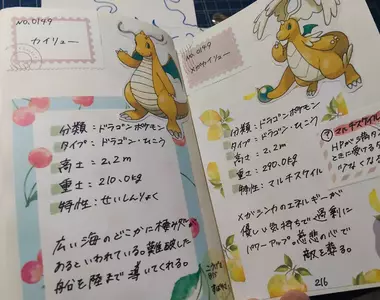 NO.0149
カイリュー
分類：ドラゴンポケモン
タイプ：ドラゴン・ひこう
高さ：2.2m
重さ：210.0kg
特性：せいしんりょく
広い海のどこかに棲み家が
あるといわれている。難破した
船を陸まで導いてくれる。
NO.0149
メガカイリュー
分類：ドラゴンポケモン
タイプ：ドラゴン・ひこう
高さ：2.2m
重さ：290.0kg
特性：マルチスケイル
メガシンカのエネルギーが
優しい気持ちで過剰に
パワーアップ。慈悲の心で
敵を葬る。
マルチスケイル
HPが
ときに受ける
少なくなる
216